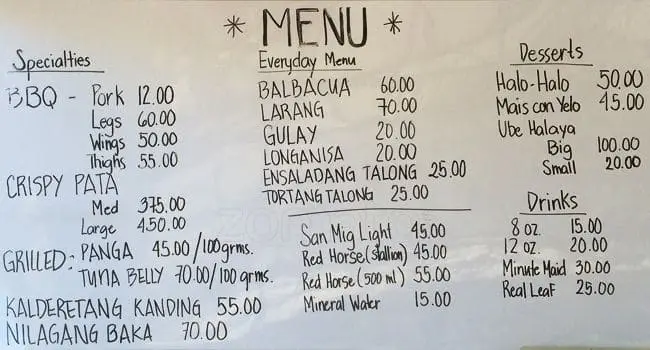 * MENU *
Specialties
BBQ - Pork 12.00
Legs 60.00
Wings 50.00
Thighs 55.00
CRISPY PATA
Med 375.00
Large 450.00
GRILLED: PANGA 45.00/100grms.
TUNA BELLY 70.00/100 grms.
KALDERETANG KANDING 55.00
NILAGANG BAKA 70.00
Everyday Menu
BALBACUA 60.00
LARANG 70.00
GULAY 20.00
LONGANISA 20.00
ENSALADANG TALONG 25.00
TORTANG TALONG 25.00
San Mig Light 45.00
Red Horse (stallion) 45.00
Red Horse (500 ml) 55.00
Mineral Water 15.00
Desserts
Halo-Halo 50.00
Mais con Yelo 45.00
Ube Halaya
Big 100.00
Small 20.00
Drinks
8 oz. 15.00
12 oz. 20.00
Minute Maid 30.00
Real Leaf 25.00